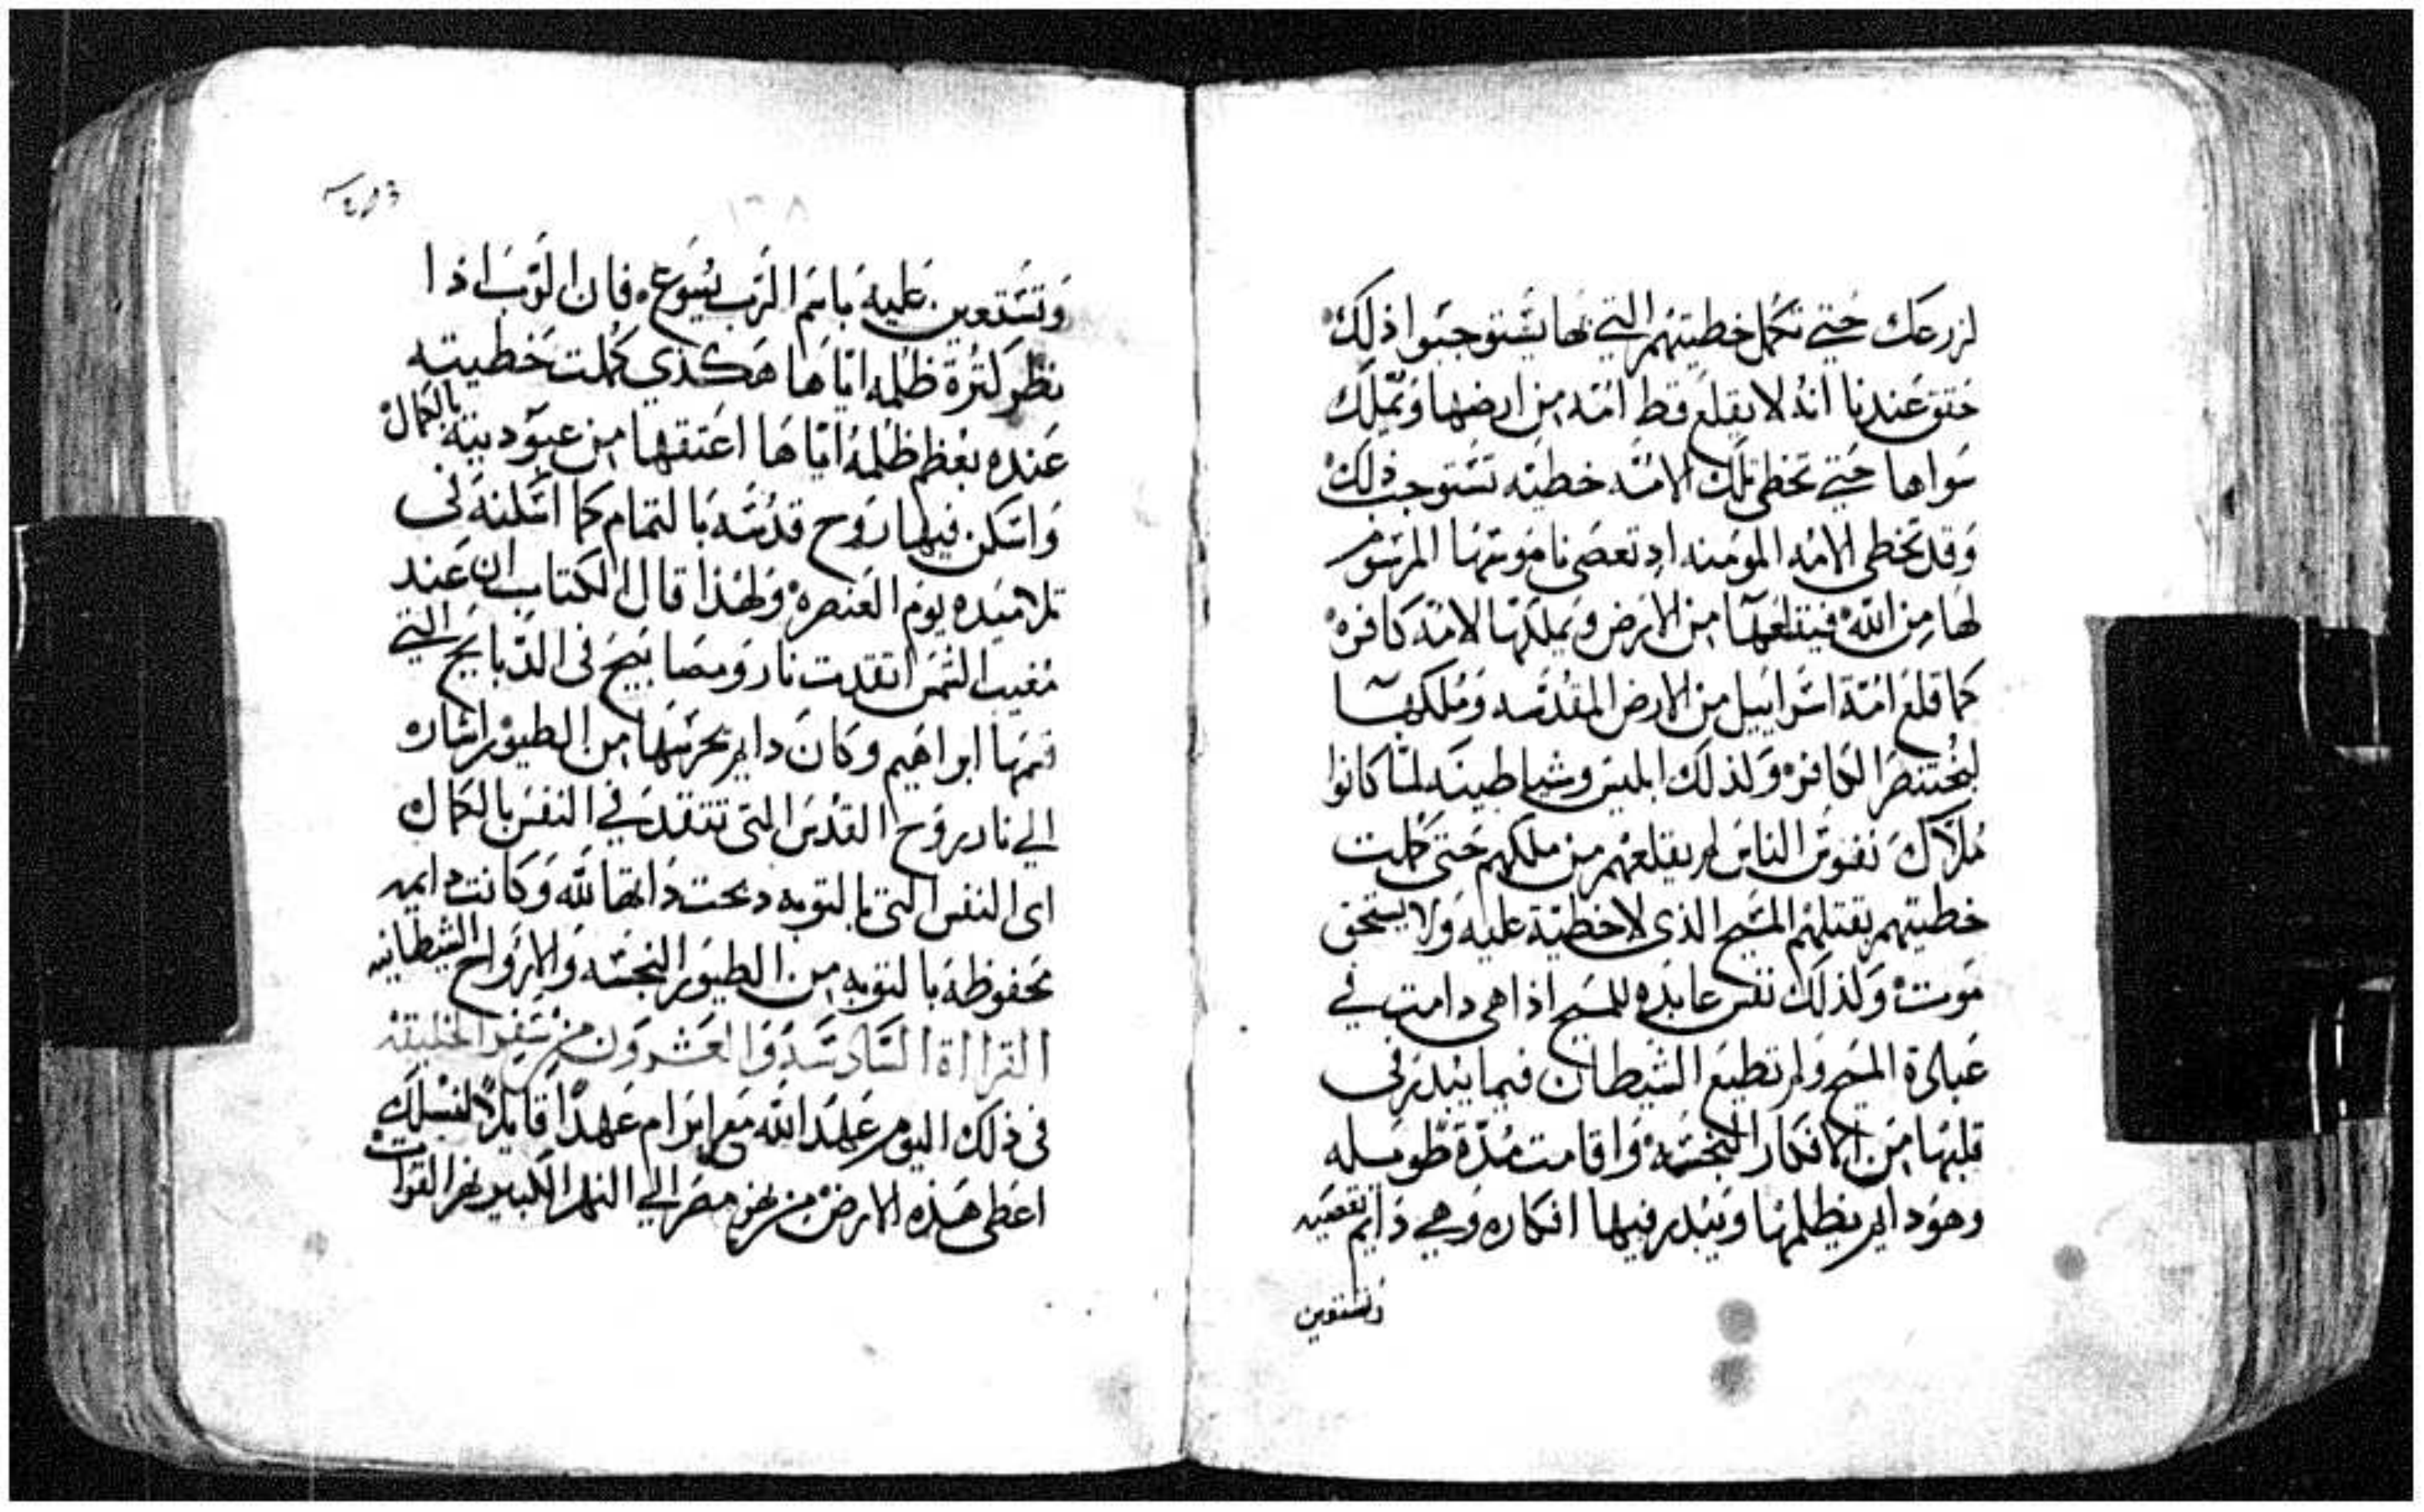 لزرعك حتي تكمل خطيتهم التي بها يستوجبوا ذلك
حقق عندنا انه لا يقلع قط امه من ارضها ويملك
سواها حتي تخطي تلك الامه خطيه تستوجب ذلك
وقد تخطي الامه المومنه اد تعصي ناموسها المرسوم
لها من الله فيقلعها من الارض ويملكها لامه كافره
كما قلع امة اسراييل من الارض المقدسه وملكها
لبختنصر الكافره ولذلك ابليس وشياطينه لما كانوا
ملاك نفوس الناس لم يقلعهم من ملكهم حتي كملت
خطيتهم بقتلهم المسيح الذي لا خطية عليه ولا يستحق
موت ولذلك نفس عابده للمسيح اذا هي دامت في
عبادة المسيح ولم تطيع الشيطان فيما يبدر في
قلبها من الافكار النجسه واقامت مدة طويله
وهو دايم يظلمها ويبدر فيها افكاره وهي دايم تعصيه
وتستعين
وتستعين عليه باسم الرب يسوع فان الرب اذا
نظر كثرة ظلمه اياها هكذي كملت خطيته
عنده بعظم ظلمه اياها اعتقها من عبوديته بالكمال
واسكن فيها روح قدسه بالتمام كما اسكنه في
تلاميده يوم العنصره ولهذا قال الكتاب ان عند
مغيب الشمس اتقدت نار ومصابيح في الدبايح التي
قسمها ابراهيم وكان دايم يحرسها من الطيور اشاره
الي نار روح القدس التي تتقد في النفس بالكمال
اي النفس التي بالتوبه دبحت داتها لله وكانت دايمه
محفوظه بالتوبه من الطيور النجسه والارواح الشيطانيه
القرااة السادسه والعشرون من سفر الخليقه
في ذلك اليوم عهد الله مع ابرام عهدا قايلا لنسلك
اعطي هذه الارض من نهر مصر الي النهر الكبير نهر الفرات